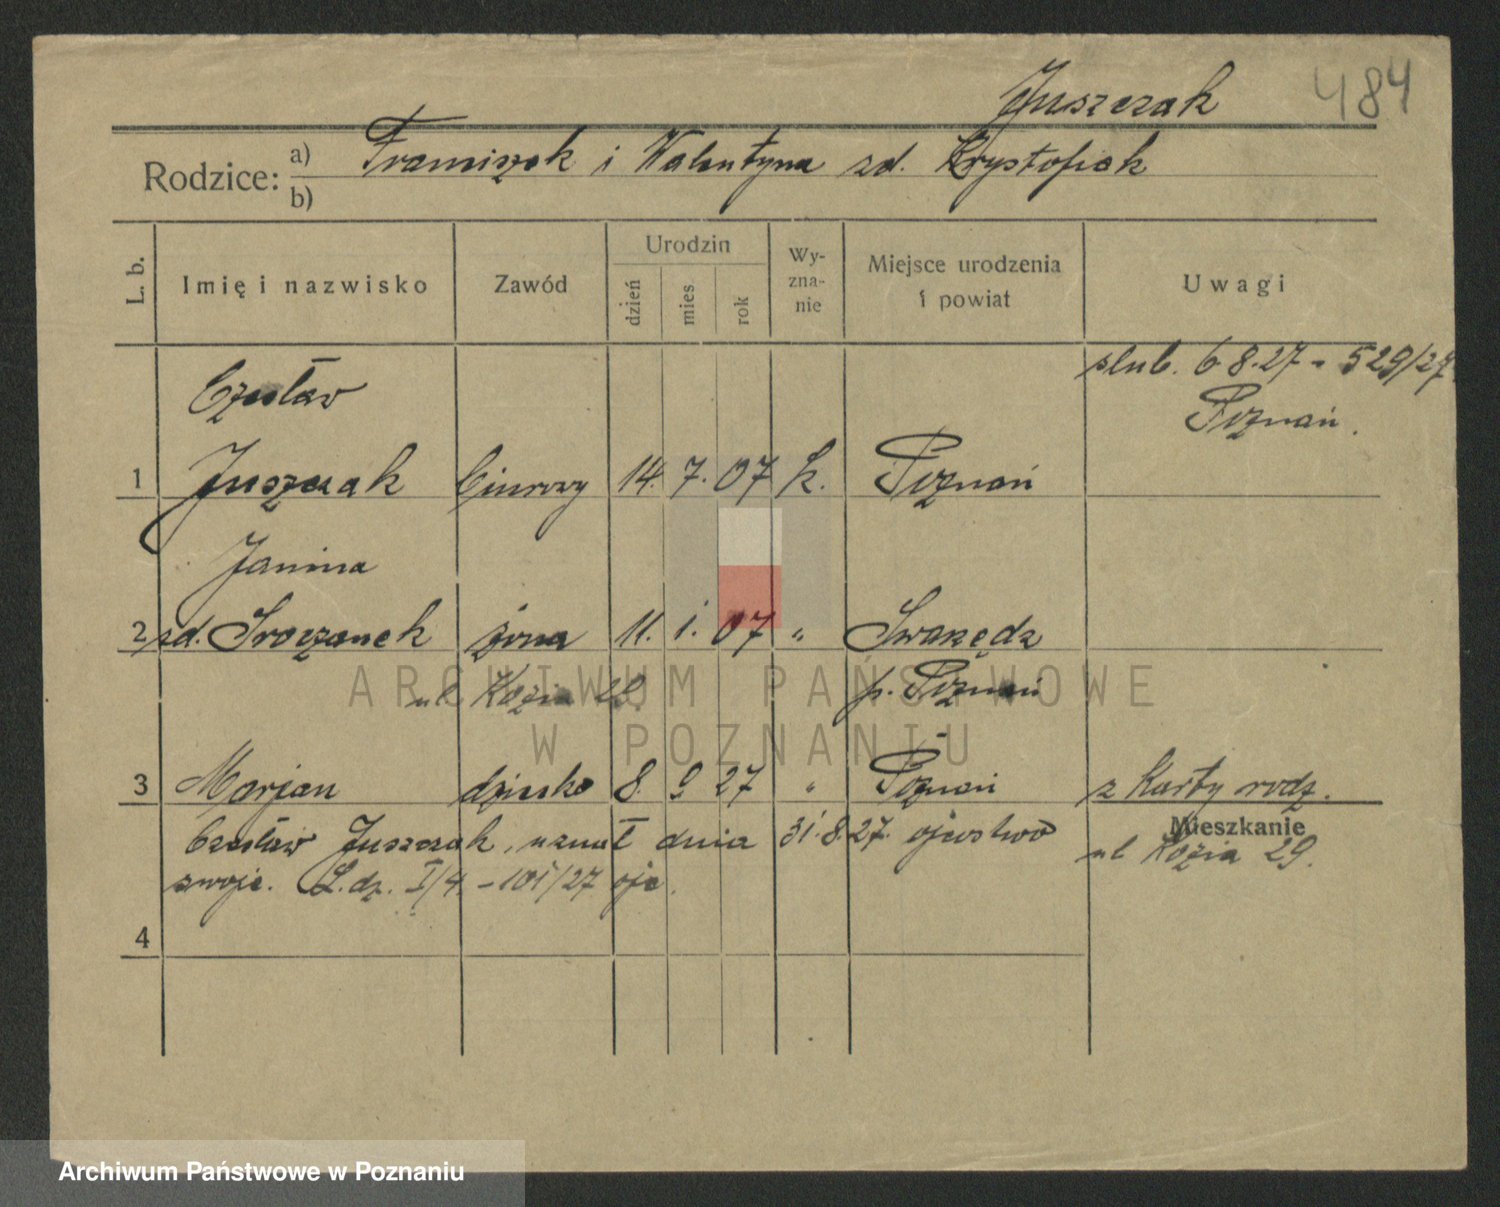 Juszczak 484
Rodzice: a) Franciszek i Walentyna zd. Krystofiak
b)
L. b. Imię i nazwisko Zawód Urodzin dzień mies rok Wyznanie Miejsce urodzenia i powiat Uwagi
ślub. 6.8.27 - 529/27
Czesław Poznań.
1 Juszczak biurowy 14. 7. 07 k. Poznań
Janina
2 zd. Sroczanek żona 11. 1. 07 " Swarzędz
ul. Kozia p. Poznań
ARCHIWUM PAŃSTWOWE
W POZNANIU
3 Marjan dziecko 8. 2 27 " Poznań z Karty rodz.
Czesław Juszczak, uznał dnia 31.8.27. ojcostwo Mieszkanie
ul Kozia 29.
swoje. L.dz. I/4 - 101/27 ojc.
4
Archiwum Państwowe w Poznaniu